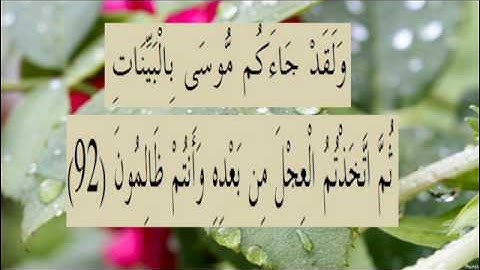 وَلَقَدْ جَاءَكُم مُّوسَى بِالْبَيِّنَاتِ
ثُمَّ اتَّخَذْتُمُ الْعِجْلَ مِن بَعْدِهِ وَأَنتُمْ ظَالِمُونَ (92)